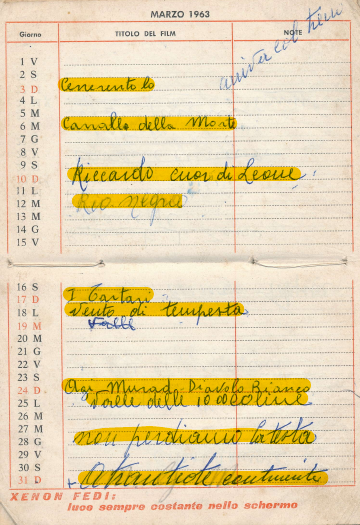 MARZO 1963
Giorno TITOLO DEL FILM NOTE
universal film
1 V
2 S
3 D Cenerentola
4 L
5 M
6 M Cavallo della Morte
7 G
8 V
9 S
10 D Riccardo cuor di Leone
11 L
12 M Rio Negro
13 M
14 G
15 V
16 S
17 D I Tartari
18 L Vento di tempesta
19 M Valle
20 M
21 G
22 V
23 S
24 D Agi Murad Diavolo Bianco
25 L Valle delle 10000 coline
26 M
27 M
28 G non perdiamo la testa
29 V
30 S
31 D Atlantide continente
XENON FEDI:
luce sempre costante nello schermo